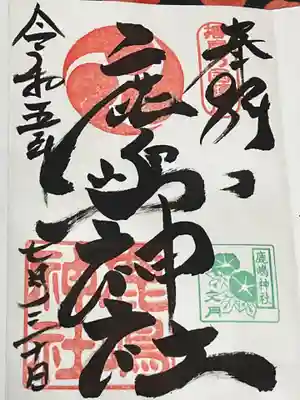 奉拝
鹿嶋神社
令和五年
七月三十日
鹿嶋神社
文月
鹿嶋神社